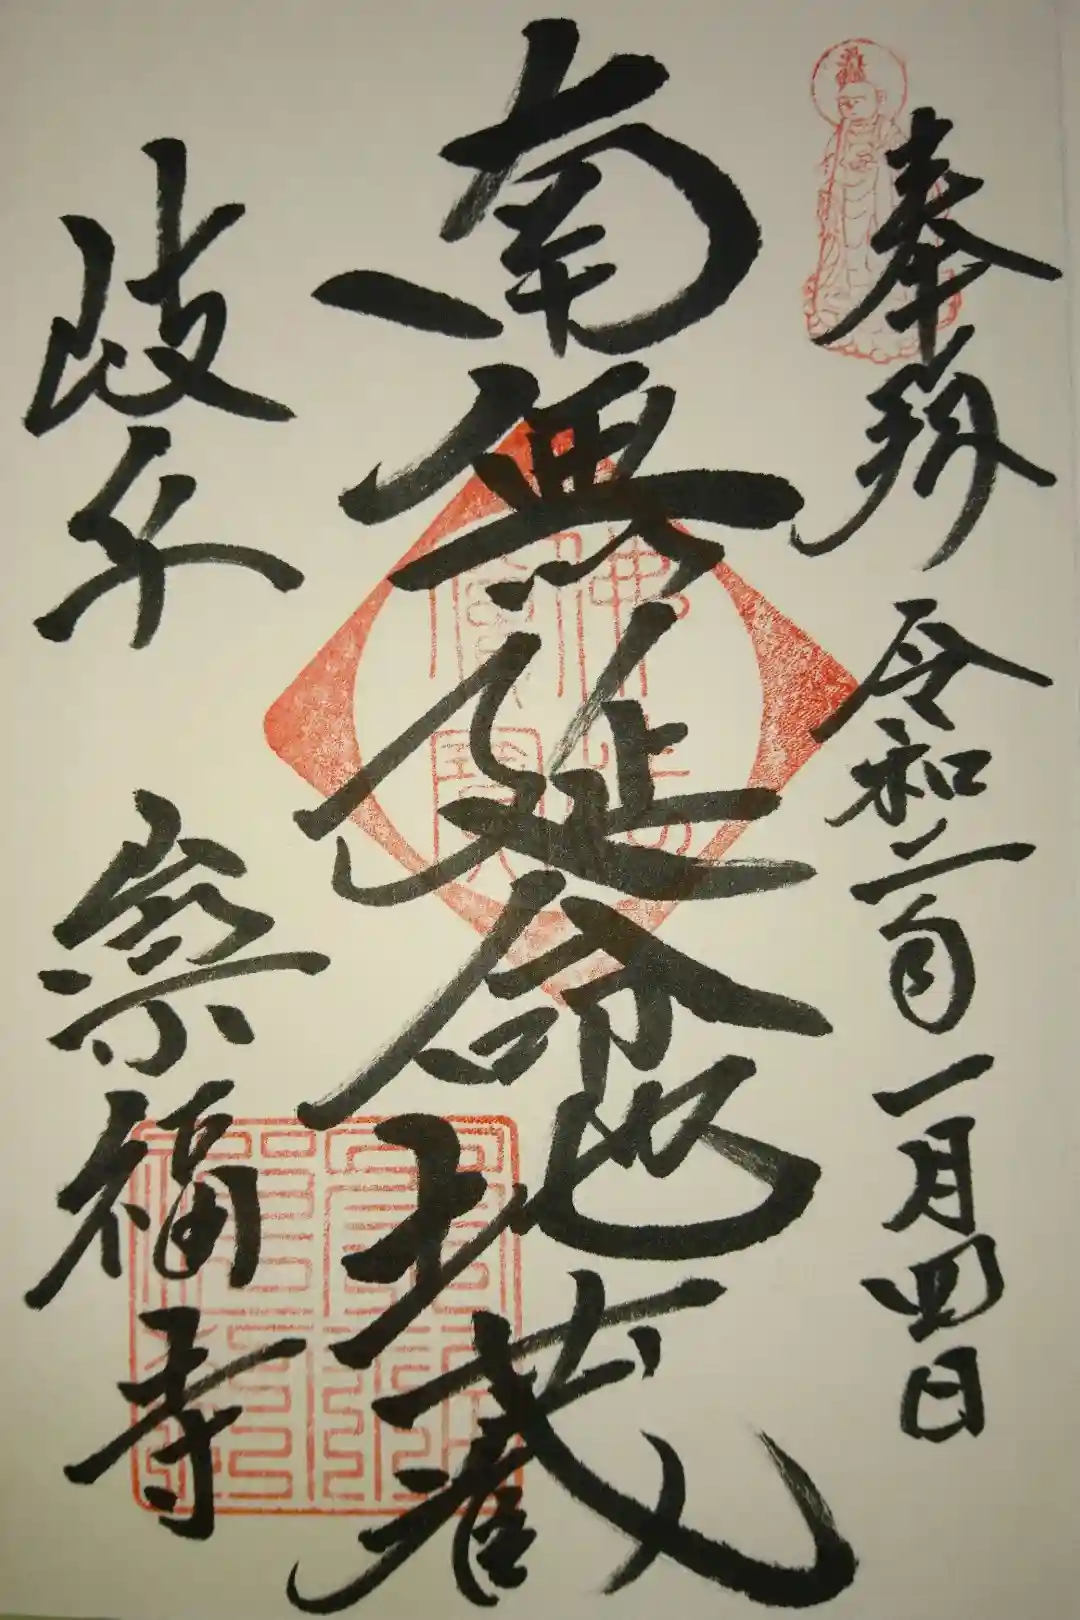 奉拜 令和二年 一月四日
南無延命地蔵
岐阜 崇福寺
佛法僧寶